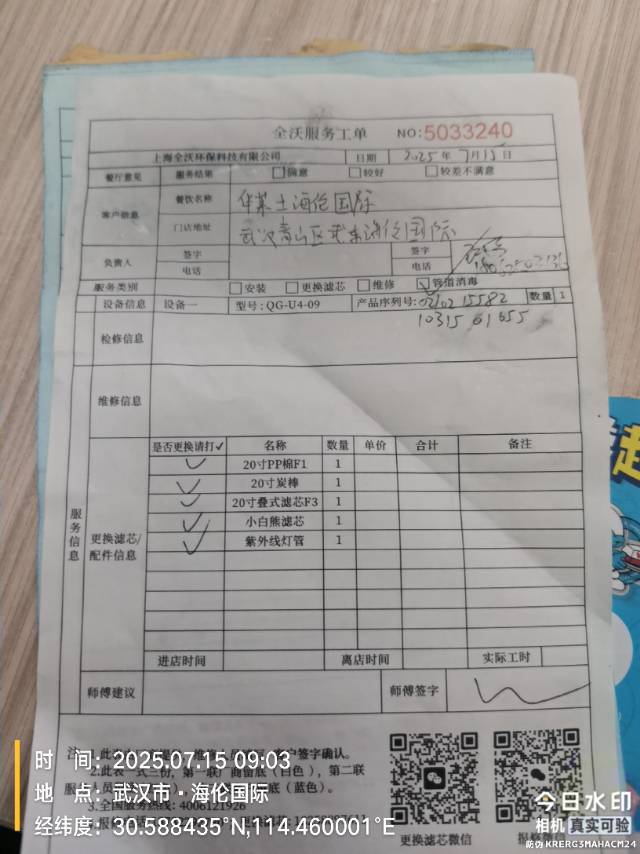 全沃服务工单 NO:5033240
上海全沃环保科技有限公司 日期 2025年7月15日
餐厅意见 服务结果 满意 较好 较差不满意
客户信息 餐饮名称 华莱士海伦国际
门店地址 武汉青山区武东海伦国际
负责人 签字 签字
电话 电话
服务类别 安装 更换滤芯 维修 管道消毒
设备信息 设备一 型号:QG-U4-09 产品序列号: 数量 1
10315 61655
检修信息
维修信息
服务信息
更换滤芯/配件信息
是否更换请打✓ 名称 数量 单价 合计 备注
✓ 20寸PP棉F1 1
✓ 20寸炭棒 1
✓ 20寸叠式滤芯F3 1
✓ 小白熊滤芯 1
✓ 紫外线灯管 1
进店时间 离店时间 实际工时
师傅建议 师傅签字
客户签字确认。
2.此表一式三份,第一联厂商留底(白色),第二联
底(蓝色)。
3.全国服务热线:4008121926
更换滤芯微信 报修微信
时 间:2025.07.15 09:03
地 点:武汉市·海伦国际
经纬度:30.588435°N,114.460001°E
今日水印
相机 真实可验
防伪 KRERG3MAHACM24